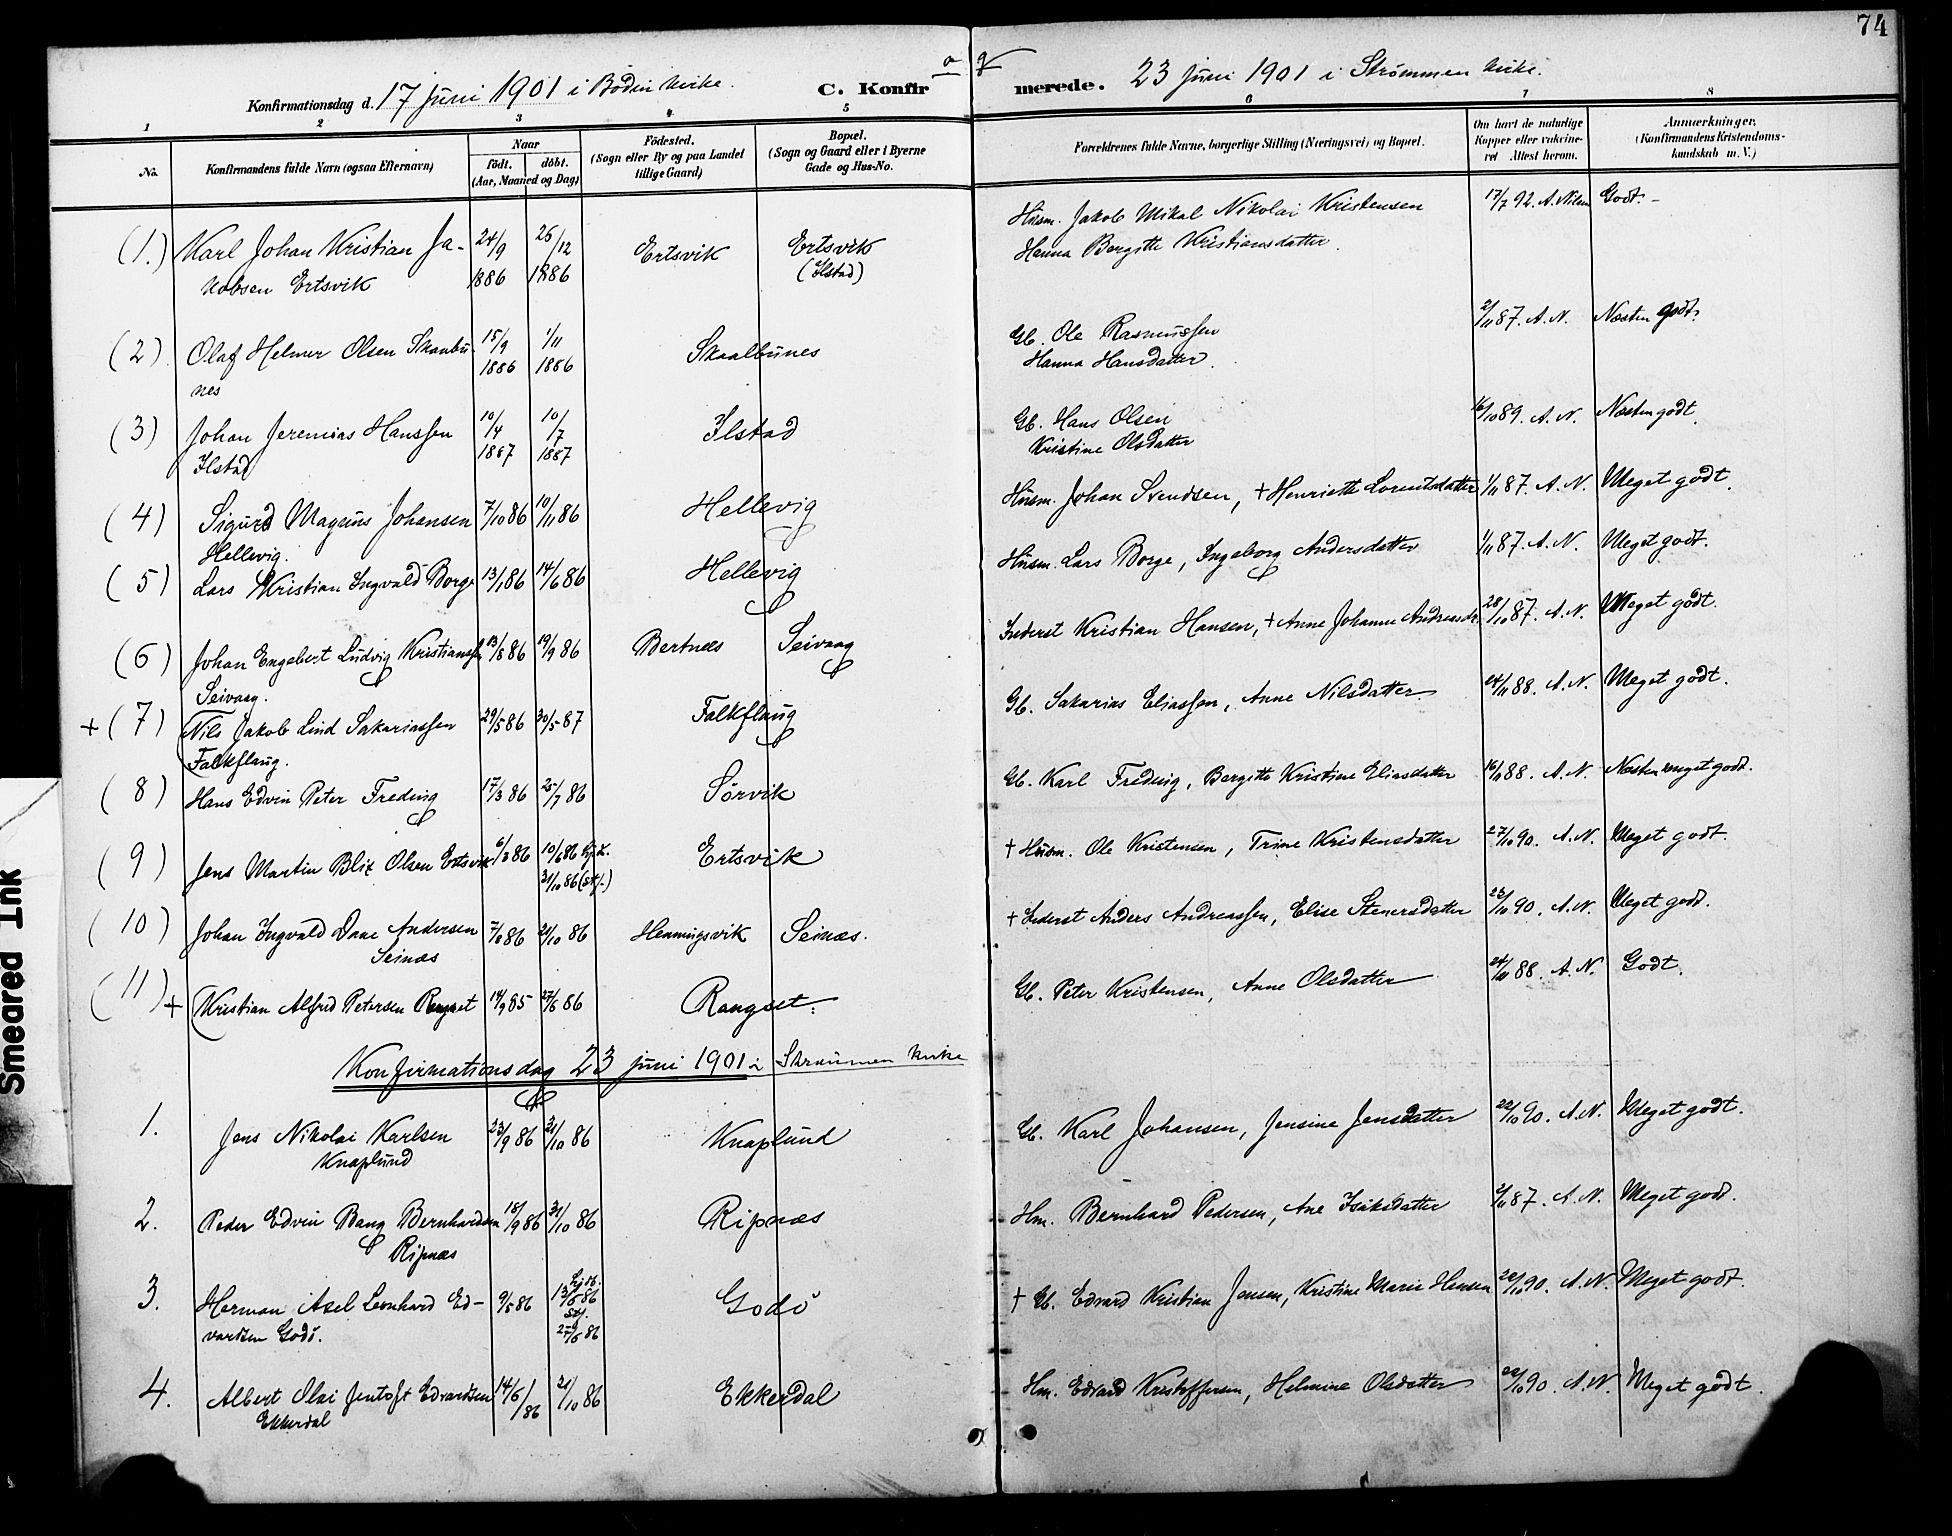 74
Konfirmationsdag d. 17 juni 1901 i Bodin kirke. C. Konfir og merede. 23 juni 1901 i Strömmen kirke.
1 2 3 4 5 6 7 8
No. Konfirmandens fulde Navn (ogsaa Efternavn) Naar födt. döbt. (Aar, Maaned og Dag) Födested. (Sogn eller By og paa Landet tillige Gaard) Bopæl. (Sogn og Gaard eller i Byerne Gade og Hus-No. Forældrenes fulde Navne, borgerlige Stilling (Næringsvei) og Bopæl. Om havt de naturlige Kopper eller vakcineret Attest herom. Anmærkninger. (Konfirmandens Kristendomskundskab m. V.)
(1.) Karl Johan Kristian Ja- 24/9 26/12 Ertsvik Ertsvik Husm. Jakob Mikal Nikolai Kristensen 17/7 92. A. Nilsen Godt. -
kobsen Ertsvik 1886 1886 (Ilstad) Hanna Bergitte Kristiansdatter.
(2) Olaf Helmer Olsen Skaalbu- 15/9 1/11 Skaalbunes Gb. Ole Rasmussen 2/11 87. A. N. Næsten godt.
nes 1886 1886 Hanna Hansdatter.
(3) Johan Jeremias Hanssen 10/4 10/7 Ilstad Gb. Hans Olsen 16/10 89. A. N. Næsten godt.
Ilstad 1887 1887 Kristine Olsdatter
(4) Sigurd Magnus Johansen 7/10 86 10/11 86 Hellevig Husm. Johan Stendsen, + Henriette Lorentsdatter 1/11 87. A. N. Meget godt.
Hellevig.
(5) Lars Kristian Ingvald Borge 13/1 86 14/6 86 Hellevig Husm. Lars Borge, Ingeborg Andersdatter 1/11 87. A. N. Meget godt.
(6) Johan Engebert Ludvig Kristiansen 13/8 86 19/9 86 Bertnæs Seivaag Inderst Kristian Hansen, + Anne Johanne Andreasdr. 28/10 87. A. N. Meget godt.
Seivaag.
+ (7) Nils Jakob Lind Sakariassen 29/5 86 30/5 87 Falkflaug Gb. Sakarias Eliassen, Anne Nilsdatter 24/11 88. A. N. Meget godt.
Falkflaug.
(8) Hans Edvin Peter Freding 17/3 86 25/7 86 Sörvik Gb. Karl Freding, Bergitte Kristine Eliasdatter 16/11 88. A. N. Næsten meget godt.
(9) Jens Martin Blix Olsen Ertsvik 6/3 86 10/6 86 hj. d. Ertsvik + Husm. Ole Kristensen, Trine Kristensdatter 27/10 90. A. N. Meget godt.
31/10 86 (stf.)
(10) Johan Ingvald Daae Andersen 7/8 86 24/10 86 Henningsvik Seinæs. + Inderst Anders Andreassen, Elise Stenersdatter 23/10 90. A. N. Meget godt.
Seinæs
(11) + Kristian Alfred Petersen Rangset 14/9 85 27/6 86 Rangset. Gb. Peter Kristensen, Anne Olsdatter 24/11 88. A. N. Godt.
Konfirmationsdag 23 juni 1901 i Strömmen kirke
1. Jens Nikolai Karlsen 23/9 86 31/10 86 Knaplund Gb. Karl Johansen, Jensine Jensdatter 22/10 90. A. N. Meget godt.
Knaplund
2. Peder Edvin Bang Bernhardsen 18/9 86 31/10 86 Ripnæs Hm. Bernhard Pedersen, Ane Isaksdatter 2/11 87. A. N. Meget godt.
Ripnæs
3. Herman Axel Leonhard Ed- 9/5 86 hj. d. 13/6 86 Godö + Gb. Edvard Kristian Jensen, Kristine Marie Hansen 22/10 90. A. N. Meget godt.
vardsen Godö. stf. 27/6 86
4. Albert Olai Jentoft Edvardsen 14/6/86 31/10 86 Ekkerdal Hm. Edvard Kristoffersen, Helmine Olsdatter 22/10 90. A. N. Meget godt.
Ekkerdal
Smeared Ink